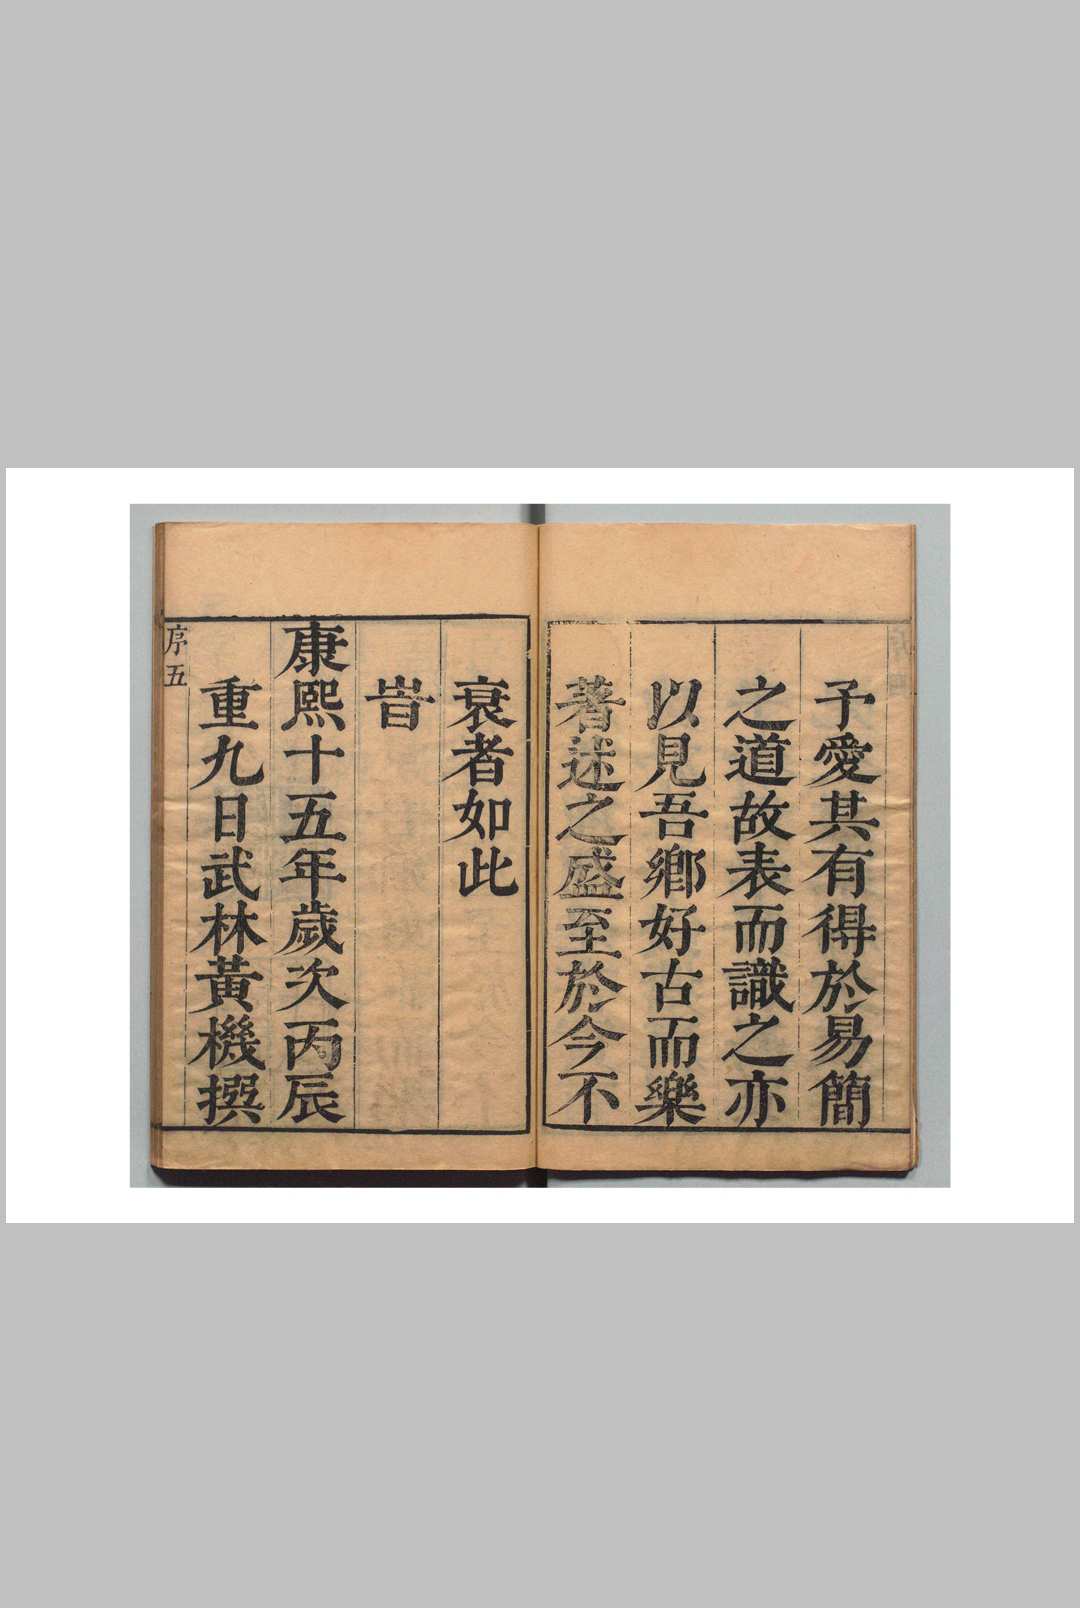 予愛其有得於易簡
之道故表而識之亦
以見吾鄉好古而樂
著述之盛至於今不
衰者如此
旹
康熙十五年歲次丙辰
重九日武林黃機撰
序五